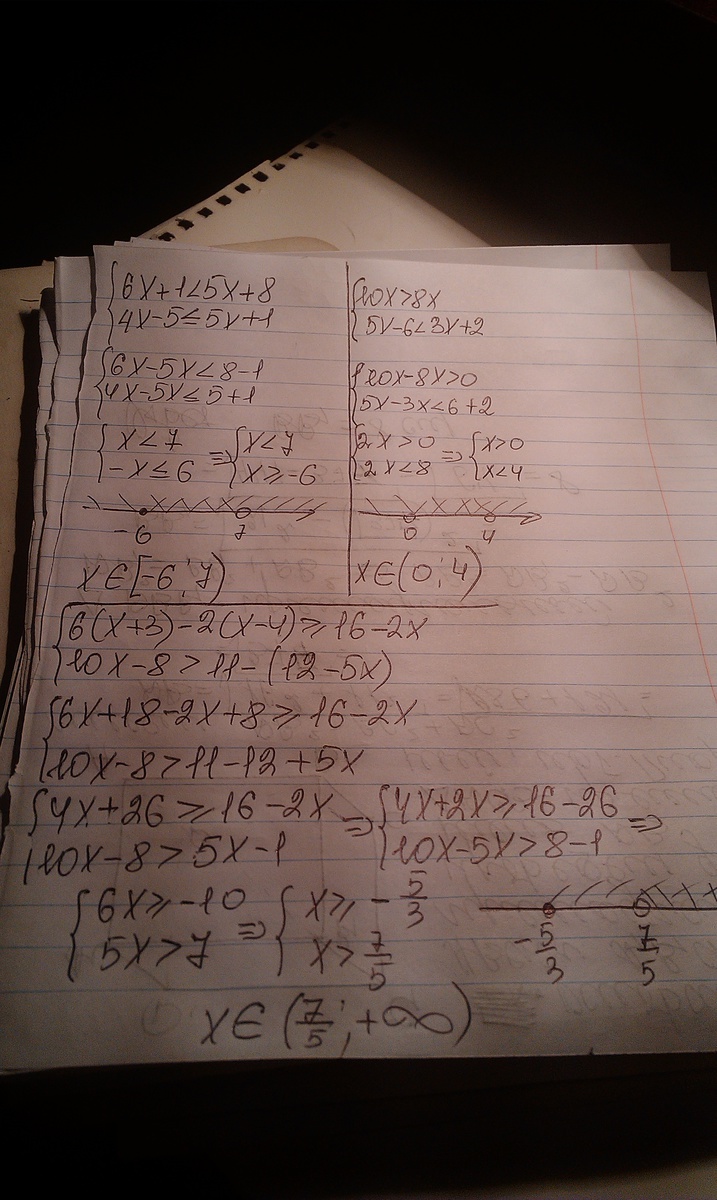 {6x+1<5x+8
{4x-5≤5x+1
{6x-5x<8-1
{4x-5x≤5+1
{x<7 => {x<7
{-x≤6 {x≥-6
-6 7
x∈[-6;7)
{10x>8x
{5x-6<3x+2
{10x-8x>0
{5x-3x<6+2
{2x>0 => {x>0
{2x<8 {x<4
0 4
x∈(0;4)
{6(x+3)-2(x-4)≥16-2x
{10x-8>11-(12-5x)
{6x+18-2x+8≥16-2x
{10x-8>11-12+5x
{4x+26≥16-2x => {4x+2x≥16-26 =>
{10x-8>5x-1 {10x-5x>8-1
{6x≥-10 => {x≥-5/3
{5x>7 {x>7/5
-5/3 7/5
x∈(7/5;+∞)